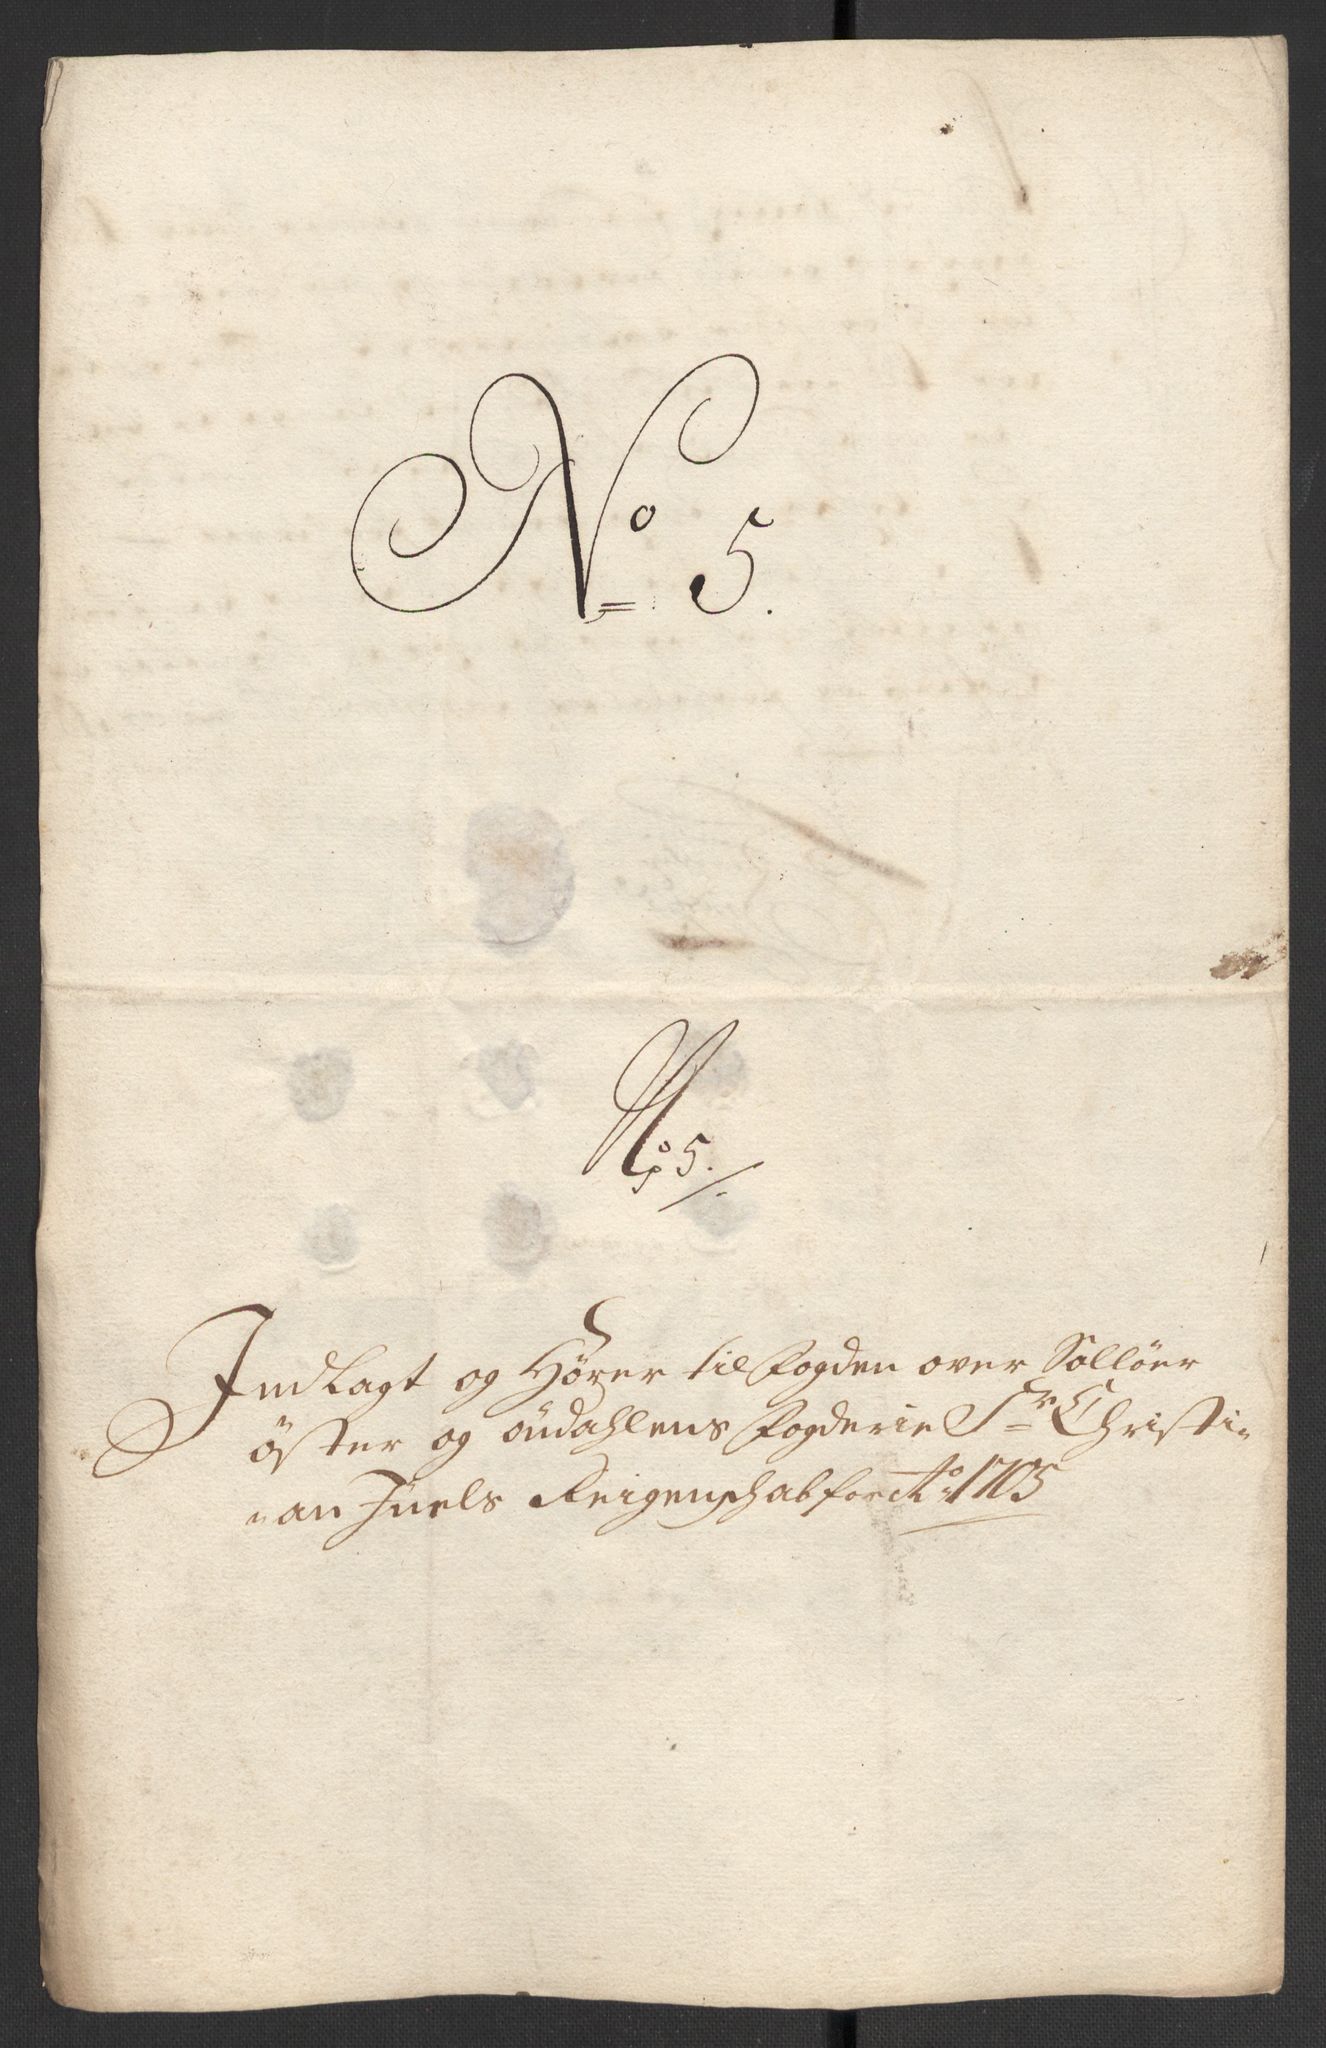 No 5.
No 5.
Indlagt og Hörer til Fogden over Sollöer
öster og oudahlens Fogderie Sr Christi-
-an Juels Reigenschab for Ao 1705